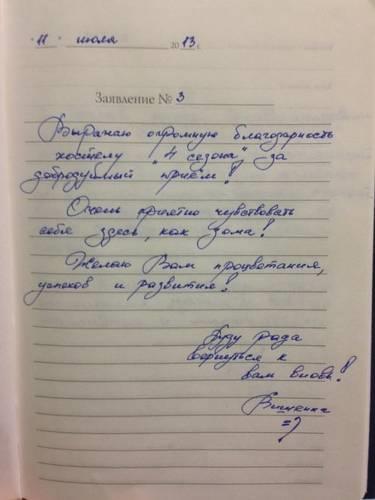 "11" июля 2013 г.
Заявление № 3
Выражаю огромную благодарность
хостелу "4 сезона" за
добродушный приём!
Очень приятно чувствовать
себя здесь, как дома!
Желаю Вам процветания,
успехов и развития!
Буду рада
вернуться к
вам вновь!
Вишенка
=)